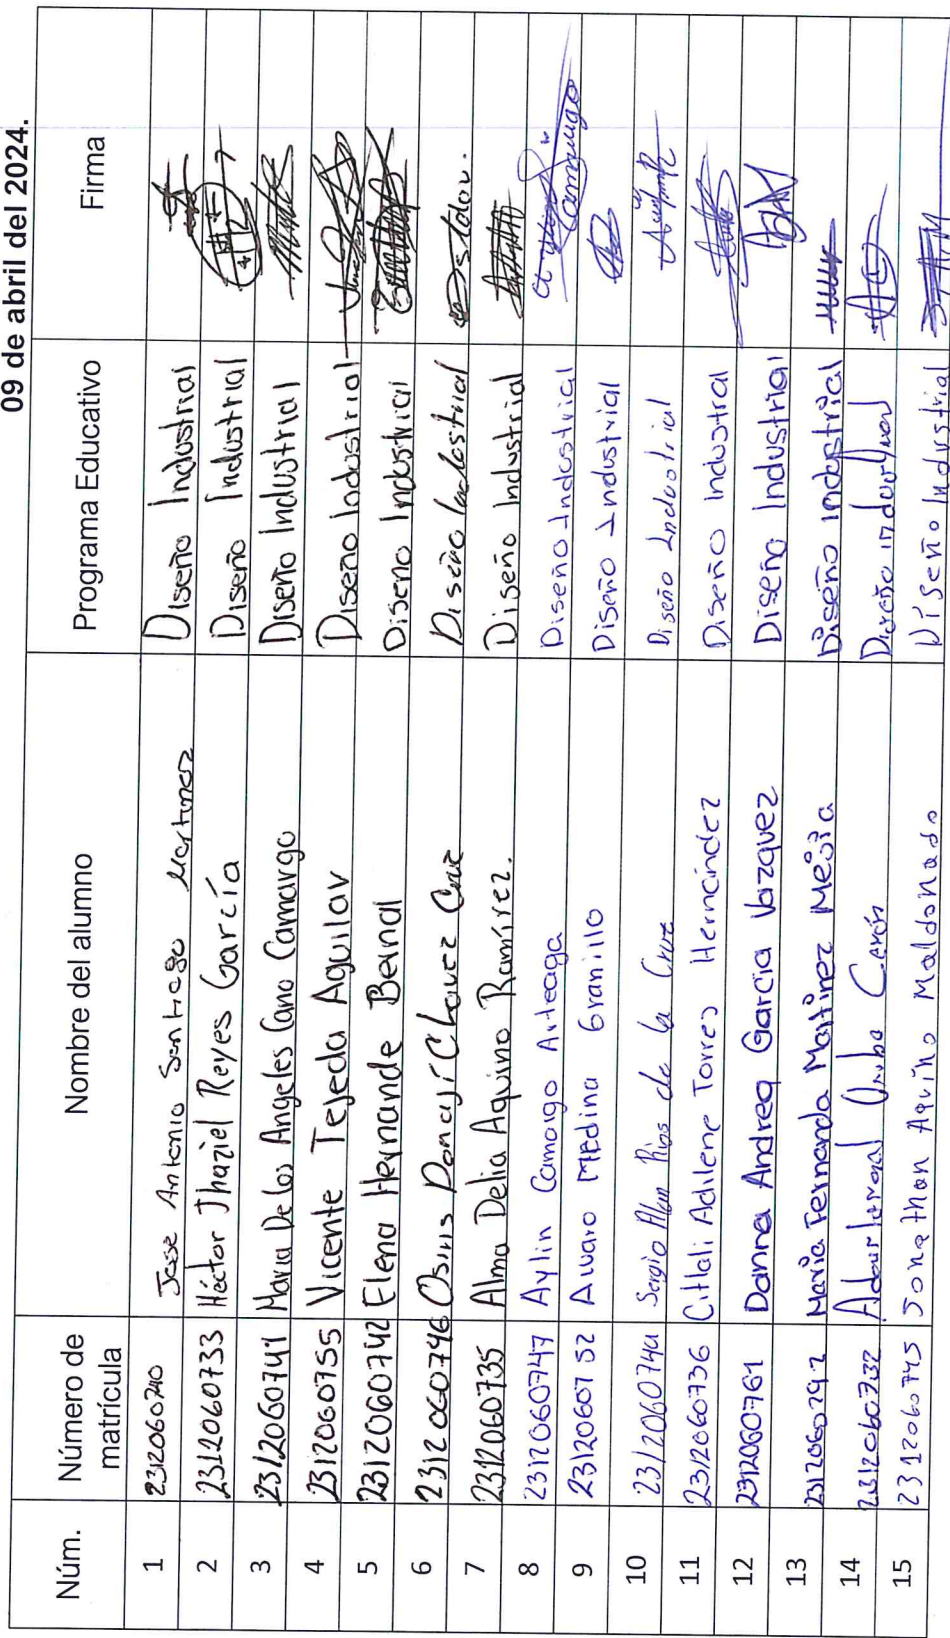 09 de abril del 2024.
Núm. Número de matrícula Nombre del alumno Programa Educativo Firma
1 2312060740 Jose Antonio Santiago Martinez Diseño Industrial
2 2312060733 Héctor Jhaziel Reyes García Diseño Industrial
3 2312060741 Maria De Los Angeles Cano Camargo Diseño Industrial
4 2312060755 Vicente Tejeda Aguilar Diseño Industrial
5 2312060742 Elena Hernande Bernal Diseño Industrial
6 2312060746 Osiris Donají Chavez Cruz Diseño Industrial
7 2312060735 Alma Delia Aquino Ramírez. Diseño Industrial
8 2312060747 Aylin Camargo Arteaga Diseño Industrial Camargo
9 2312060752 Alvaro Medina Granillo Diseño Industrial
10 Sergio Alan Rios de la Cruz Diseño Industrial
11 2312060736 Citlali Adilene Torres Hernández Diseño Industrial
12 2312060761 Danna Andrea García Vazquez Diseño Industrial
13 Maria Fernanda Martinez Mejía Diseño industrial
14 2312060732 Uribe Cerón Diseño industrial
15 2312060745 Jonathan Aquino Maldonado Diseño Industrial